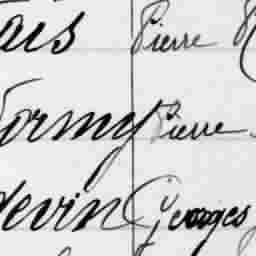 ais Pierre
ormy Pierre
devin Georges